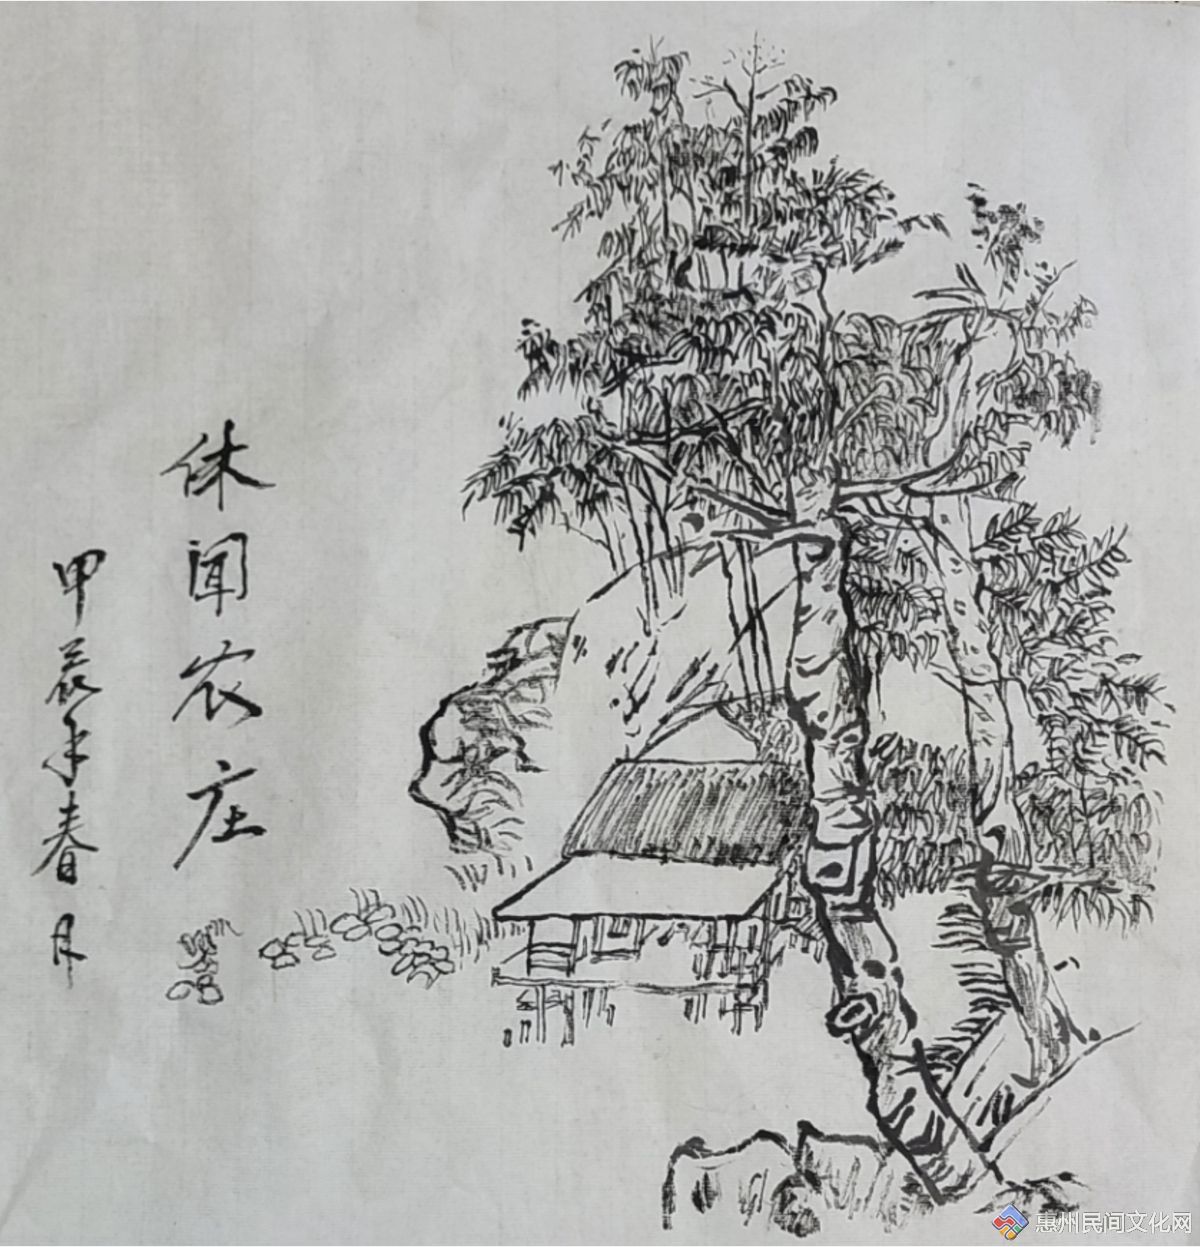 休闻农庄
甲辰年春月
惠州民间文化网